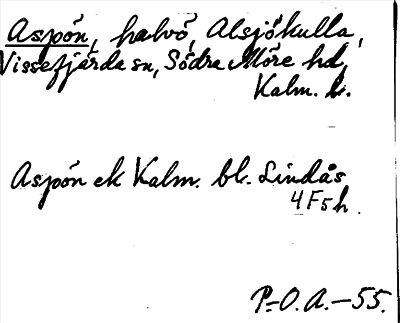 Aspön, halvö, Alsjökulla,
Vissefjärda sn, Södra Möre hd,
Kalm. l.
Aspön ek Kalm. bl. Lindås
4F5h.
P-O.A.-55.